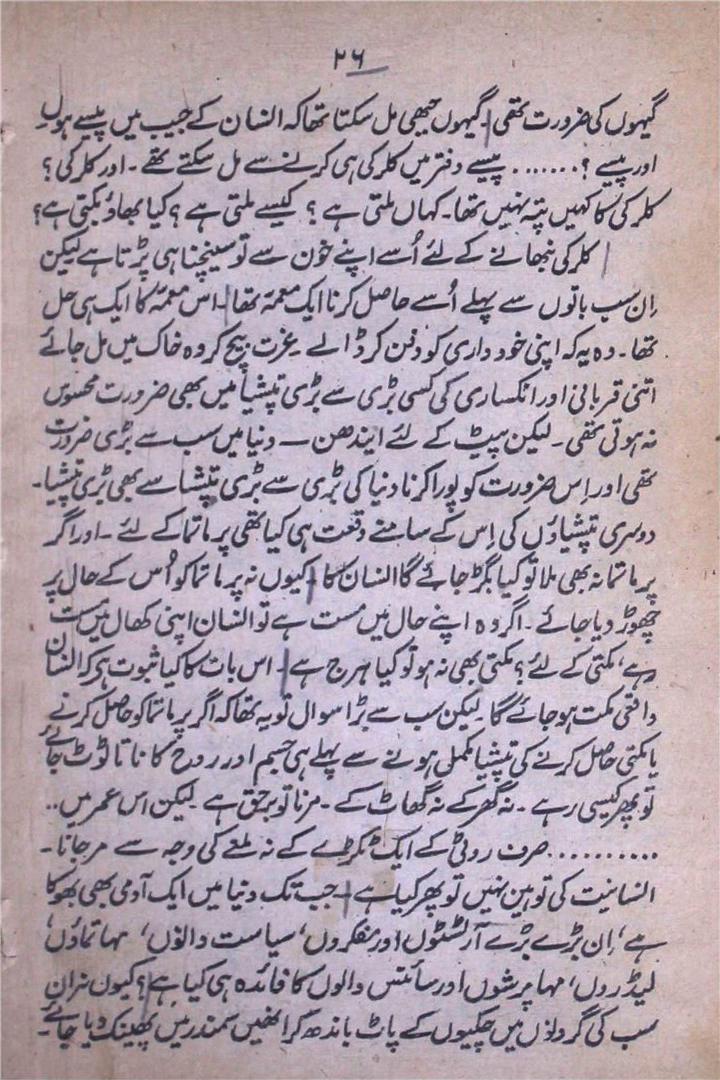 ۲۶
گیہوں کی ضرورت تھی۔ گیہوں جبھی مل سکتا تھا کہ انسان کے جیب میں پیسے ہوں
اور پیسے ؟....... پیسے دفتر میں کلرکی ہی کرنے سے مل سکتے تھے۔ اور کلرکی ؟
کلرکی کا کہیں پتہ نہیں تھا۔ کہاں ملتی ہے ؟ کیسے ملتی ہے ؟ کیا بھاؤ بکتی ہے؟
کلرکی نبھانے کے لئے اُسے اپنے خون سے تو سینچنا ہی پڑتا ہے لیکن
اِن سب باتوں سے پہلے اُسے حاصل کرنا ایک معمّہ تھا۔ اس معمّہ کا ایک ہی حل
تھا۔ وہ یہ کہ اپنی خود داری کو دفن کر ڈالے۔ عزت بیچ کر وہ خاک میں مل جائے
اتنی قربانی اور انکساری کی کسی بڑی سے بڑی تپشیا میں بھی ضرورت محسوس
نہ ہوتی تھی۔ لیکن پیٹ کے لئے ایندھن — دنیا میں سب سے بڑی ضرورت
تھی اور اِس ضرورت کو پورا کرنا دنیا کی بڑی سے بڑی تپشا سے بھی بڑی تپشیا۔
دوسری تپشیاؤں کی اِس کے سامنے وقعت ہی کیا تھی پرماتما کے لئے۔ اور اگر
پرماتما نہ بھی ملا تو کیا بگڑ جائے گا انسان کا۔ کیوں نہ پرماتما کو اُس کے حال پر
چھوڑ دیا جائے۔ اگر وہ اپنے حال میں مست ہے تو انسان اپنی کھال میں مست
رہے، مکتی کے لئے؟ مکتی بھی نہ ہو تو کیا ہرج ہے۔ اس بات کا کیا ثبوت ہی کہ انسان
واقعی مکت ہو جائے گا۔ لیکن سب سے بڑا سوال تو یہ تھا کہ اگر پرماتما کو حاصل کرنے
یا مکتی حاصل کرنے کی تپشیا مکمل ہونے سے پہلے ہی جسم اور روح کا ناتا ٹوٹ جائے
تو پھر کیسی رہے۔ نہ گھر کے نہ گھاٹ کے۔ مرنا تو برحق ہے لیکن اس عمر میں..
.......... صرف روٹی کے ایک ٹکڑے کے نہ ملنے کی وجہ سے مر جانا۔
انسانیت کی توہین نہیں تو پھر کیا ہے۔ جب تک دنیا میں ایک آدمی بھی بھوکا
ہے، اِن بڑے بڑے آرٹسٹوں اور مفکروں، سیاست دانوں، مہاتماؤں،
لیڈروں، مہا پرشوں اور سائنس والوں کا فائدہ ہی کیا ہے؟ کیوں نہ ان
سب کی گردنوں میں چکیوں کے پاٹ باندھ کر انھیں سمندر میں پھینک دیا جائے۔